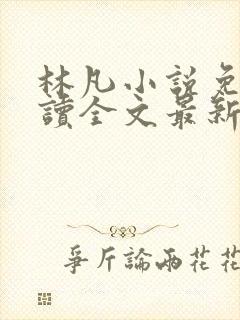 林凡小說免
讀全文最新
爭斤論兩花花